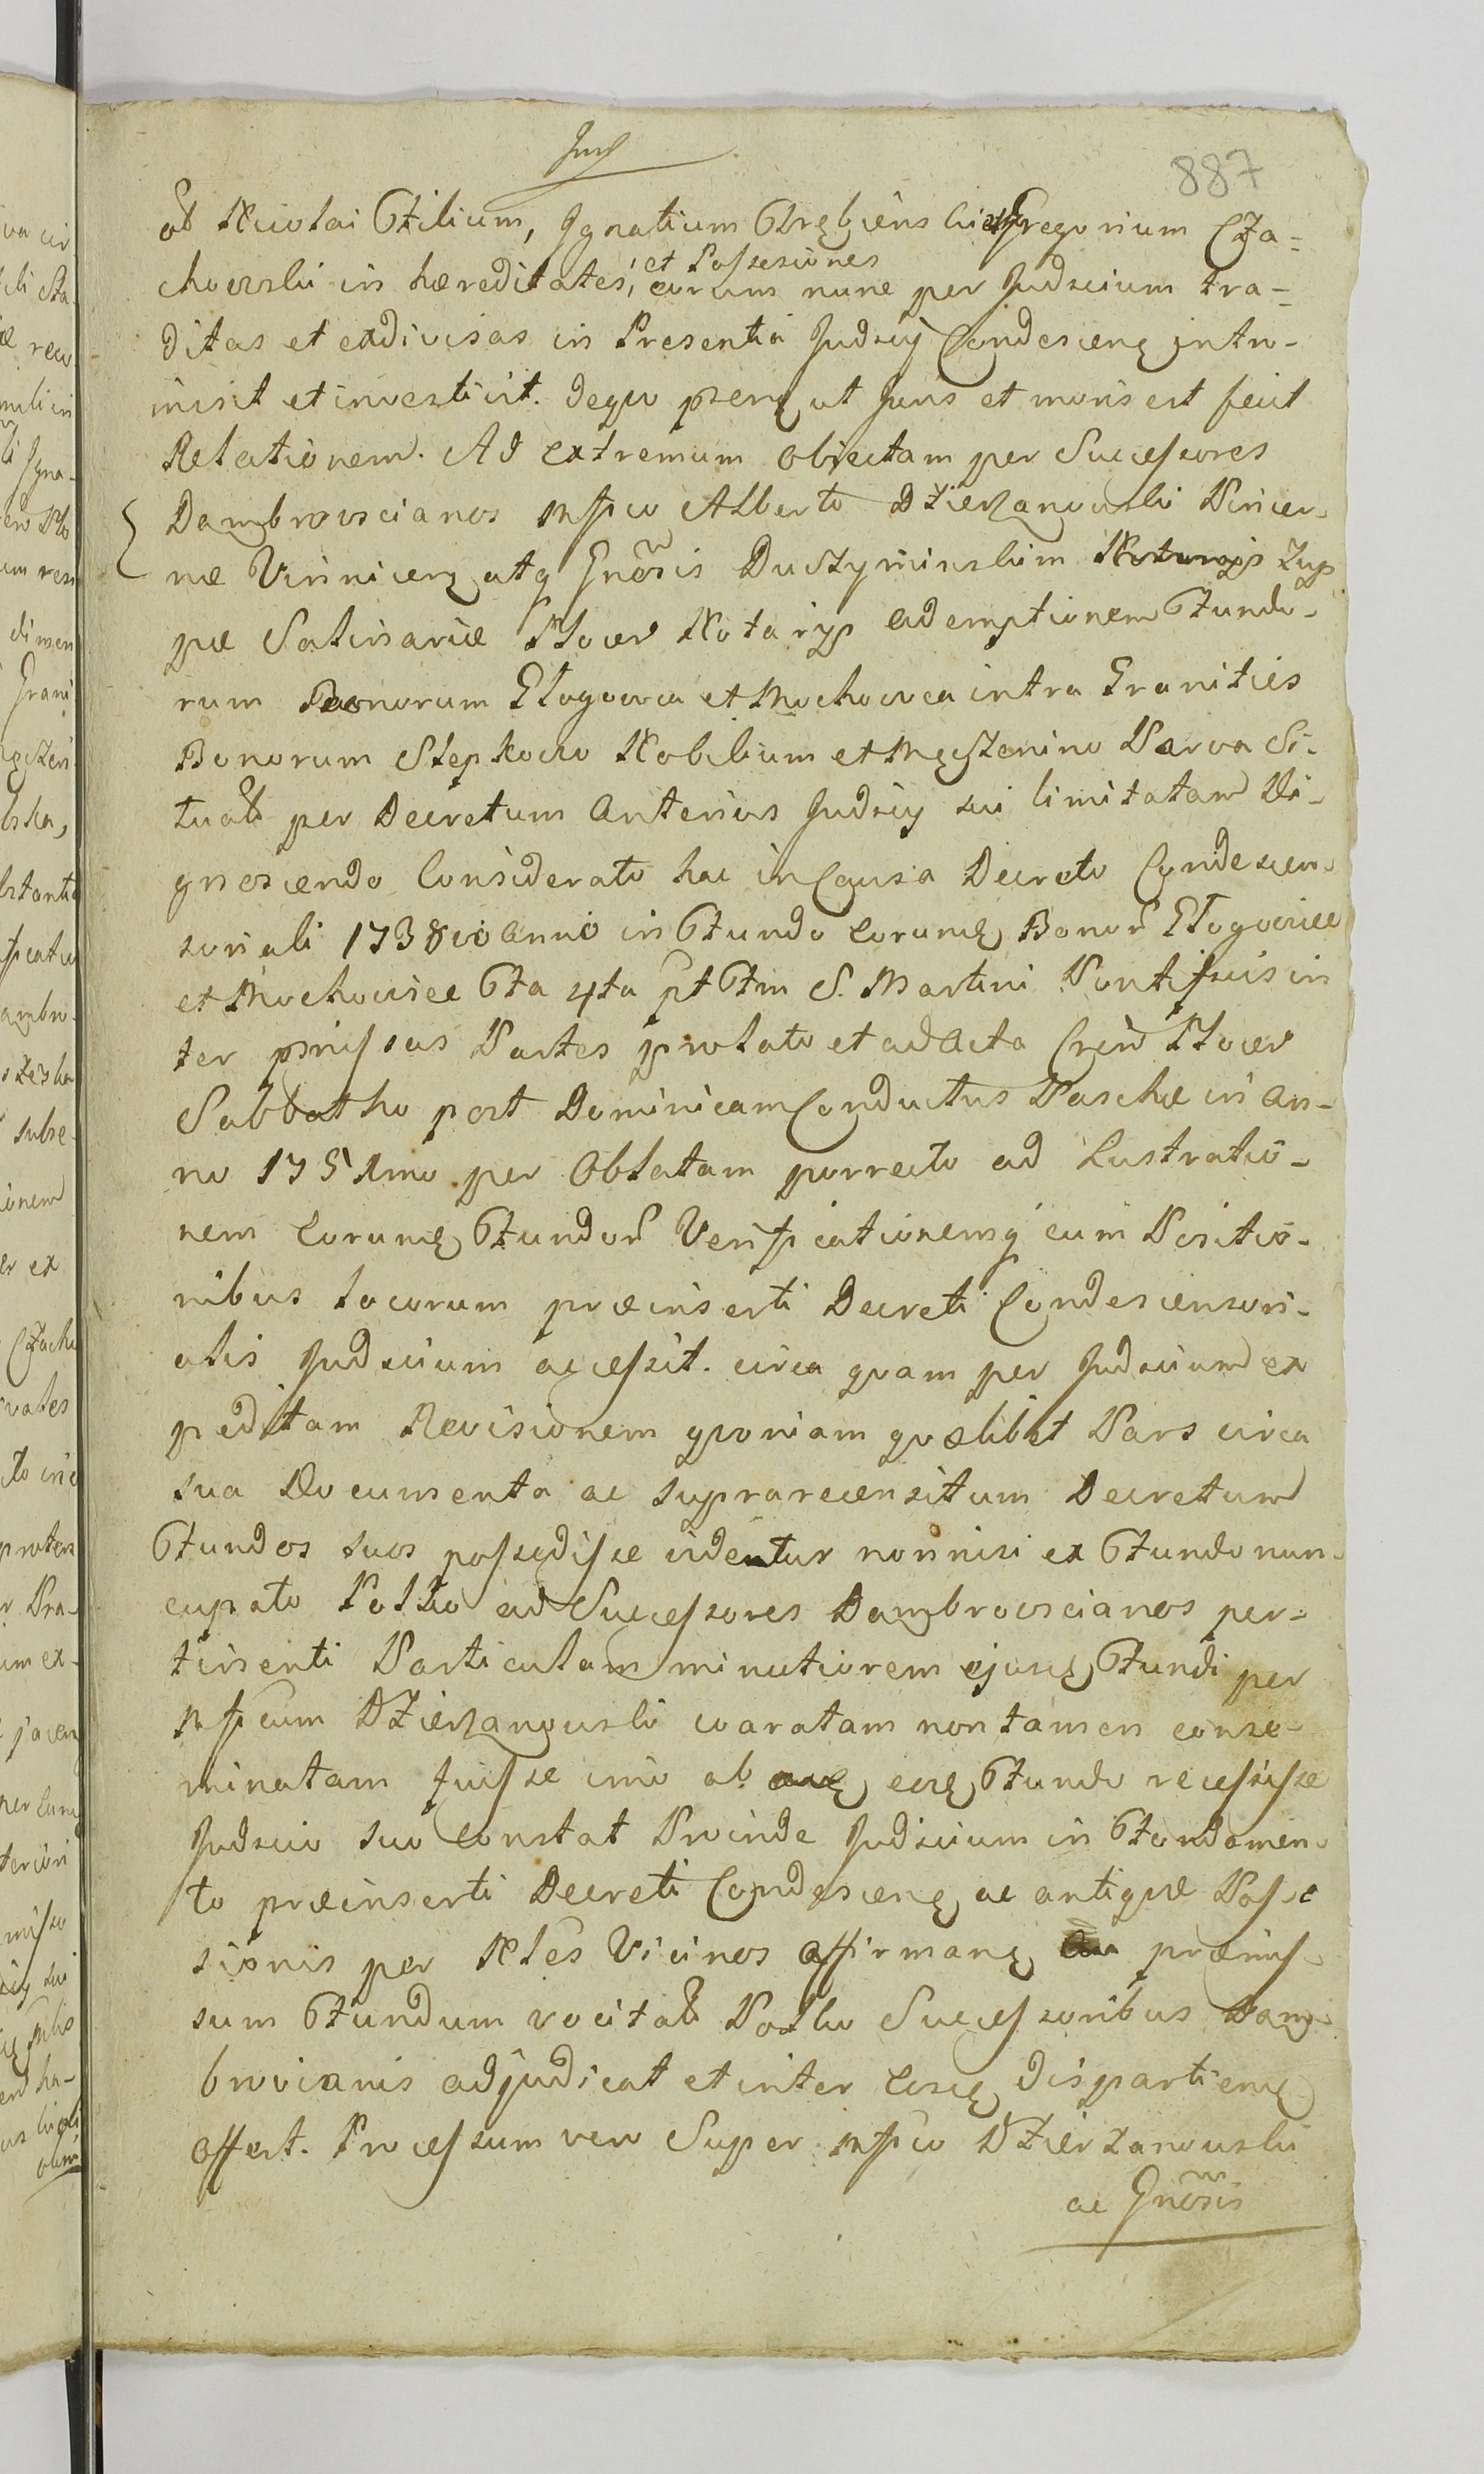 887
ab Nicolai Filium, Ignatium Strębiens ki et Gregorium Cza=
chowski in hæreditates, et Possesiones eorum nunc per Judicium tra=
ditas et exdivisas in Presentia Judicij Condescenꝫ intro-
misit et investivit. deqvo psenꝫ ut Juris et moris est fecit
Relationem. Ad extremum obiectam per Successores
Dąmbrowscianos Mfico Alberto Dzierzanowski Pincer-
næ Vinnicenꝫ atq Gnosis Duczyminskim Zup
pæ Salinariæ Plocen Notarijs ademptionem Fundo-
rum Bonorum Głogowca et Mochowca intra Granities
Bonorum Slepkowo Nobilium et Męczenino Parva Si-
tuat per Decretum anterius Judicij sui limitatam Di-
gnoscendo Considerato hac in Causa Decreto Condescen-
soriali 1738vo Anno in Fundo eorumꝫ Bonor Głogowiec
et Mochowiec Fra 4ta pt Ftm S. Martini Pontificis in
ter pmissas Partes prolato et ad Acta Plocen
Sabbatho post Dominicam Conductus Paschæ in An-
no 1751mo per Oblatam porrecto ad Lustratio-
nem eorumꝫ Fundor Verificationemq cum Positio-
nibus locorum præinserti Decreti Condescensori-
alis Judicium accessit. circa qvam per Judicium ex
peditam Revisionem qvoniam qvælibet Pars circa
sua Documenta ac suprarecensitum Decretum
Fundos suos possedisse videntur nonnisi ex Fundo nun-
cupato Polko ad Successores Dąmbrowscianos per-
tinenti Particulam minutiorem ejusꝫ Fundi per
Mficum Dzierzanowski coaratam non tamen conse-
minatam fuisse imo ab eoꝫ Fundo recessisse
Judicio suo Constat Proinde Judicium in Fundamen-
to præinserti Decreti Condescenꝫ ac antiqvæ Posse
sionis per Nles Vicinos affirmanꝫ præmis-
sum Fundum vocitat Polko Successoribus Dąm-
brovianis adjudicat et inter eosꝫ dispartienꝫ
offert. Processum vero Super Mfico Dzierzanowski
ac Gnosis